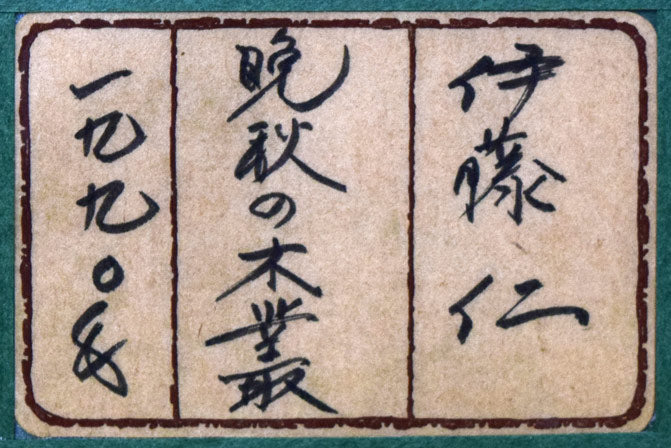 伊藤 仁
晩秋の木叢
一九九〇年